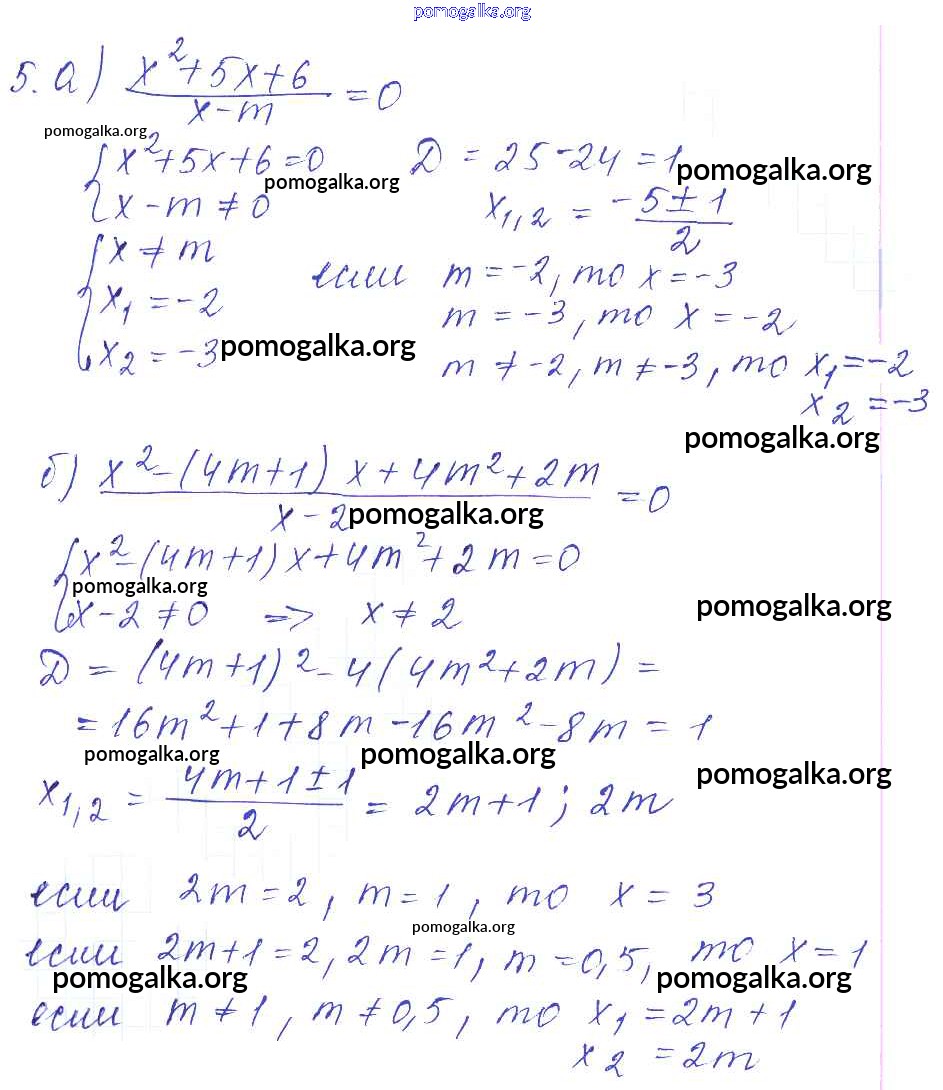 pomogalka.org
5. а) (x²+5x+6)/(x-m) = 0
pomogalka.org
{ x²+5x+6=0 Д = 25-24=1
pomogalka.org pomogalka.org
x-m≠0 x₁,₂ = (-5±1)/2
{ x≠m если m=-2, то x=-3
x₁=-2 m=-3, то x=-2
x₂=-3 pomogalka.org
m≠-2, m≠-3, то x₁=-2
x₂=-3
pomogalka.org
б) (x²-(4m+1)x+4m²+2m)/(x-2) = 0
pomogalka.org
{ x²-(4m+1)x+4m²+2m=0
pomogalka.org pomogalka.org
x-2≠0 => x≠2
Д = (4m+1)²-4(4m²+2m) =
=16m²+1+8m-16m²-8m=1
pomogalka.org pomogalka.org pomogalka.org
x₁,₂ = (4m+1±1)/2 = 2m+1; 2m
если 2m=2, m=1, то x=3
pomogalka.org
если 2m+1=2, 2m=1, m=0,5, то x=1
pomogalka.org pomogalka.org
если m≠1, m≠0,5, то x₁=2m+1
x₂=2m